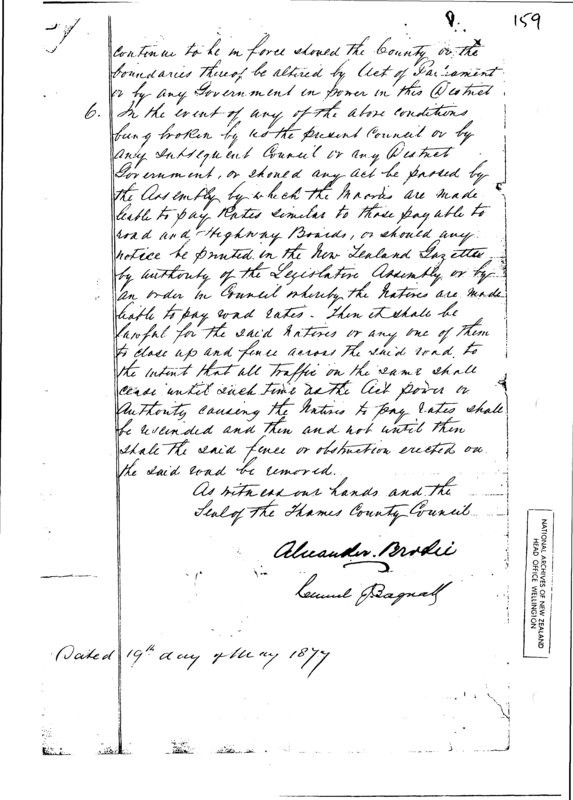 159
continue to be in force should the County or the
boundaries thereof be altered by Act of Parliament
or by any Government in power in this District
6. In the event of any of the above conditions
being broken by us the present Council or by
any subsequent Council or any District
Government, or should any act be passed by
the Assembly by which the Maoris are made
liable to pay Rates similar to those payable to
road and Highway Boards, or should any
notice be printed in the New Zealand Gazette
by authority of the Legislative Assembly or by
an order in Council whereby the Natives are made
liable to pay road rates - Then it shall be
lawful for the said Natives or any one of them
to close up and fence across the said road to
the intent that all traffic on the same shall
cease until such time as the Act power or
Authority causing the Natives to pay rates shall
be rescinded and then and not until then
shall the said fence or obstruction erected on
the said road be removed.
As witness our hands and the
Seal of the Thames County Council
Alexander Brodie
Lemuel J Bagnall
Dated 19th day of May 1877
NATIONAL ARCHIVES OF NEW ZEALAND
HEAD OFFICE WELLINGTON